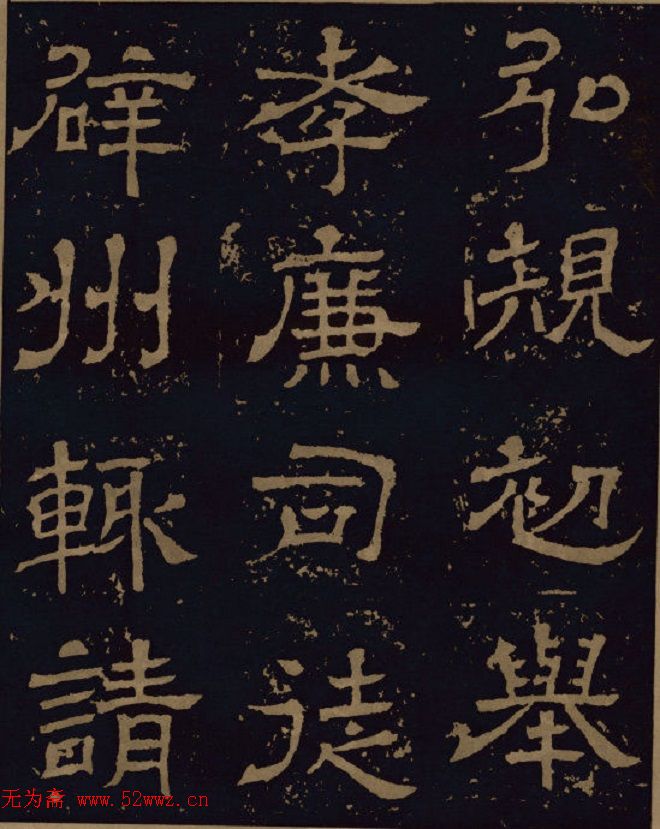 弘規初舉
孝廉司徒
辟州輒請
无为斋 www.52wwz.cn